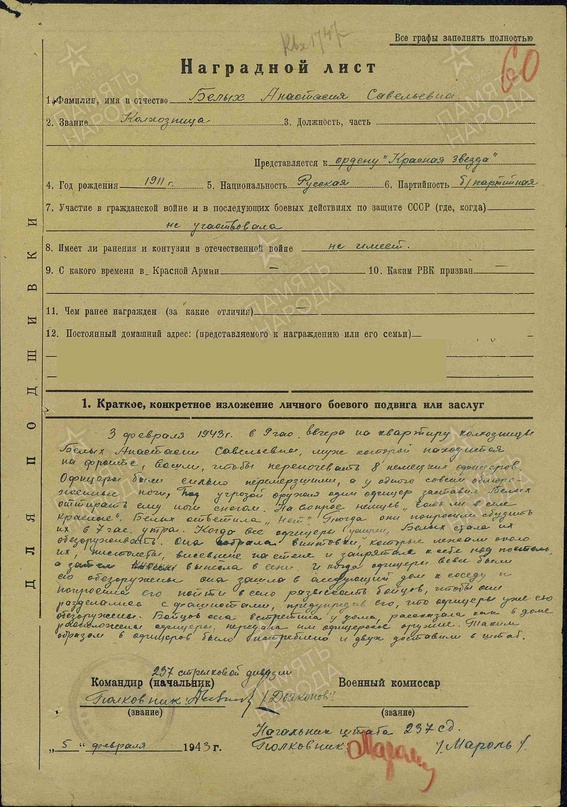 Квх1747
Все графы заполнять полностью
60
Наградной лист
1. Фамилия, имя и отчество Белых Анастасия Савельевна.
2. Звание Колхозница 3. Должность, часть
Представляется к ордену "Красная звезда"
4. Год рождения 1911 г. 5. Национальность Русская 6. Партийность б/партийная
7. Участие в гражданской войне и в последующих боевых действиях по защите СССР (где, когда)
не участвовала
8. Имеет ли ранения и контузии в отечественной войне не имеет.
9. С какого времени в Красной Армии — 10. Каким РВК призван
11. Чем ранее награжден (за какие отличия) —
12. Постоянный домашний адрес: (представляемого к награждению или его семьи)
ДЛЯ ПОДШИВКИ
1. Краткое, конкретное изложение личного боевого подвига или заслуг
3 февраля 1943г. в 9 час. вечера на квартиру колхозницы
Белых Анастасии Савельевны, муж которой находится
на фронте, вошли, чтобы переночевать 8 немецких офицеров.
Офицеры были сильно перемерзшими, а у одного совсем обморо-
женные ноги. Под угрозой оружия один офицер заставил Белых
оттирать ему ноги снегом. На вопрос немцев "есть ли в селе
красные". Белых ответила "нет". Тогда они попросили сбудить
их в 7 час. утра. Когда все офицеры уснули, Белых стала их
обезоруживать. Она собрала винтовки, которые лежали около
их, пистолеты, висевшие на стене и запрятала к себе под постель,
а затем вынесла в сени и когда офицеры все были
ею обезоружены она зашла в соседний дом к соседу и
попросила его пойти в село разыскать бойцов, чтобы они
разделались с фашистами, предупредив его, что офицеры уже ею
обезоружены. Бойцов она встретила у дома, рассказала где в доме
расположены офицеры, передала им офицерское оружие. Таким
образом 6 офицеров было истреблено и двух доставили в штаб.
237 стрелковой дивизии
Командир (начальник) Военный комиссар
Полковник /Дьяконов/
(звание) (звание)
Начальник штаба 237 сд.
"5" февраля 1943 г. Полковник /Мароль/
ПАМЯТЬ НАРОДА